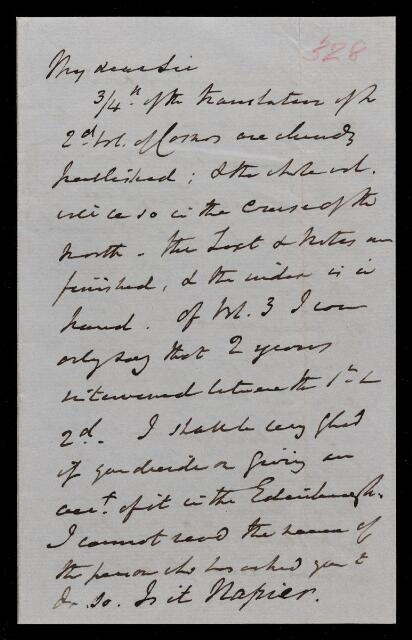 328
My dear Sir
3/4ths of the translation of the
2d. Vol. of Cosmos are already
published; & the whole vol.
will be so in the course of the
month. The Text & Notes are
finished, & the index is in
hand. Of Vol. 3 I can
only say that 2 years
intervened between the 1st &
2d. I shall be very glad
if you decide on giving an
acct. of it in the Edinburgh.
I cannot read the name of
the person who has asked you to
do so. Is it Napier.